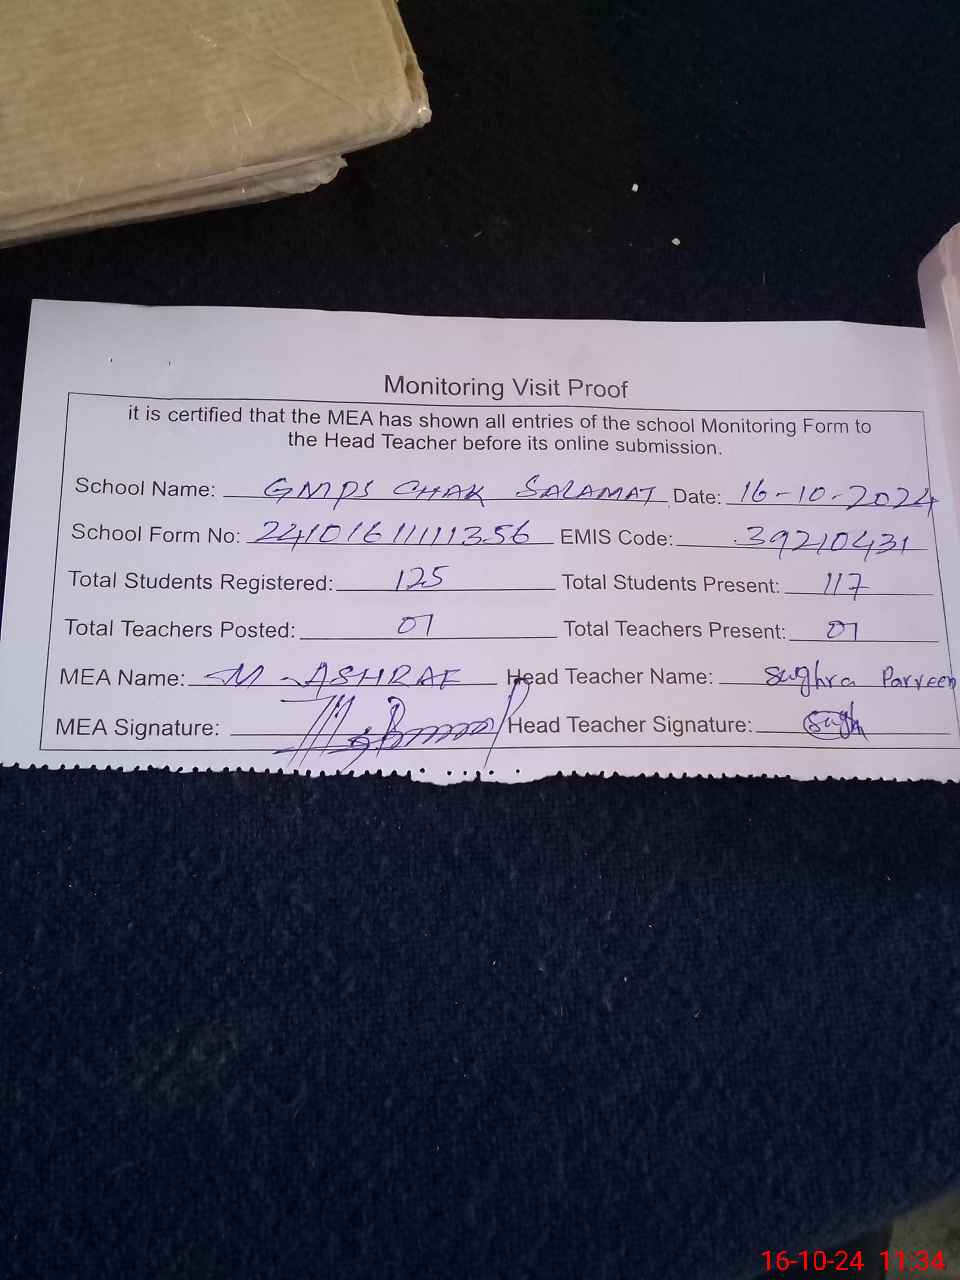 Monitoring Visit Proof
it is certified that the MEA has shown all entries of the school Monitoring Form to
the Head Teacher before its online submission.
School Name: GMPS CHAK SALAMAT Date: 16-10-2024
School Form No: 22410161111356 EMIS Code: 39210431
Total Students Registered: 125 Total Students Present: 117
Total Teachers Posted: 01 Total Teachers Present: 01
MEA Name: M-ASHRAF Head Teacher Name: Sughra Parveen
MEA Signature: Head Teacher Signature: Sugh
16-10-24 11:34